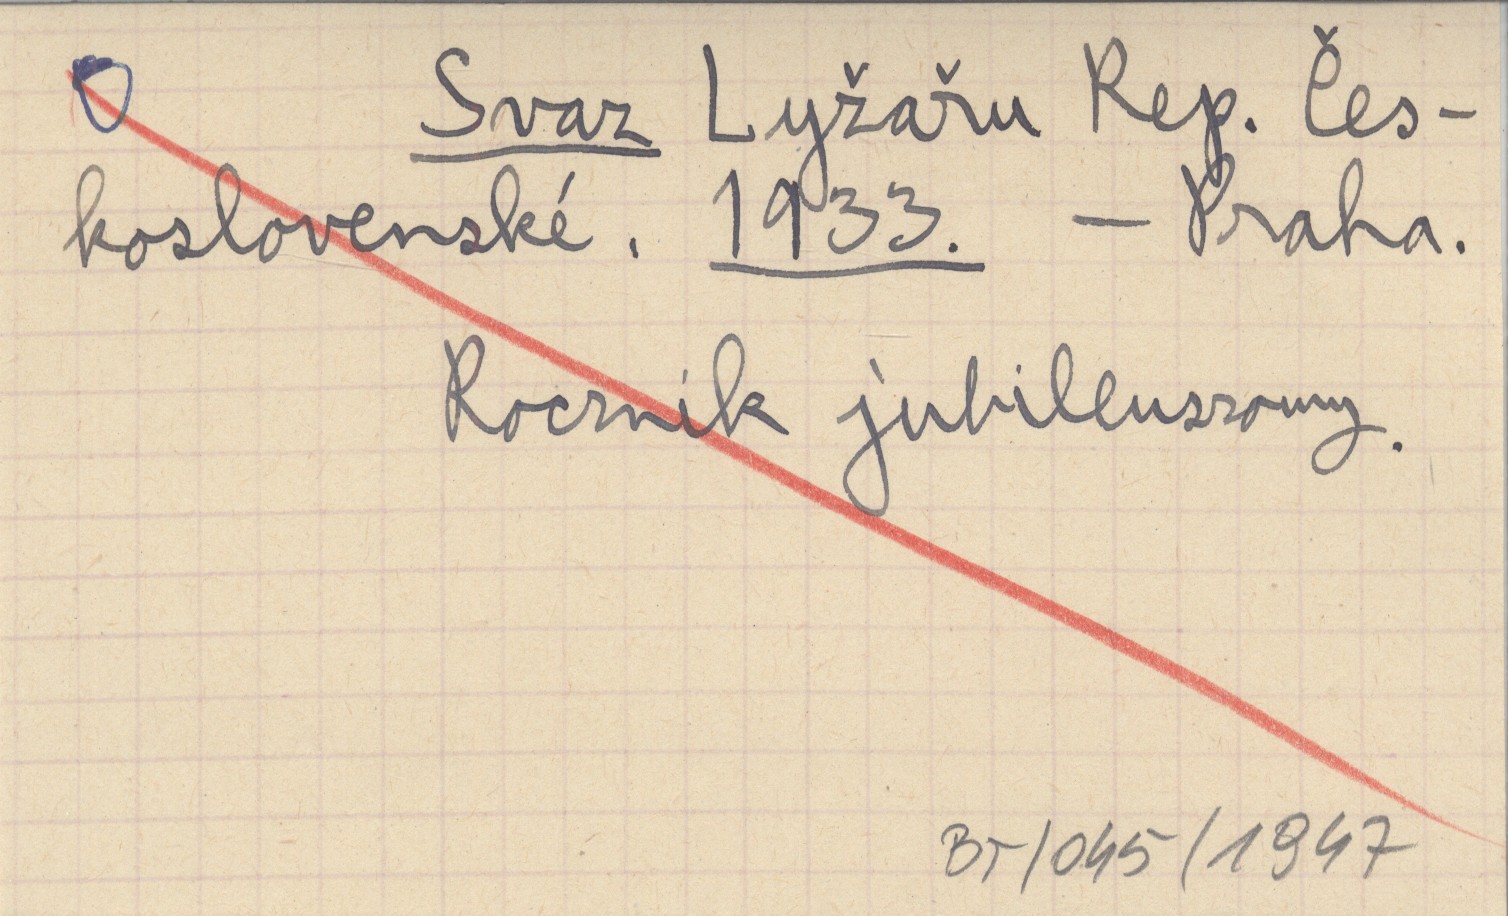 Svaz Lyžařu Rep. Čes-
koslovenské. 1933. — Praha.
Rocznik jubileuszowy.
BT/045/1947